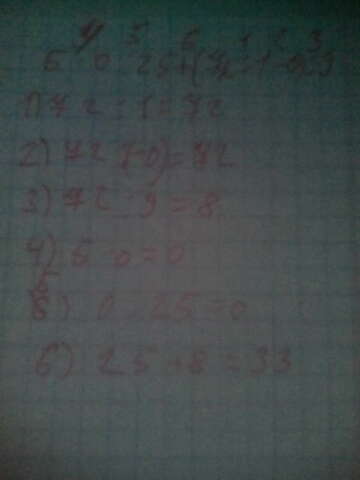 4 5 6 1 2 3
5 · 0 · 25 + (72 : 1 - 0) : 9
1) 72 : 1 = 72
2) 72 (-0) = 72
3) 72 : 9 = 8
4) 5 · 0 = 0
5) 0 · 25 = 0
6) 25 + 8 = 33